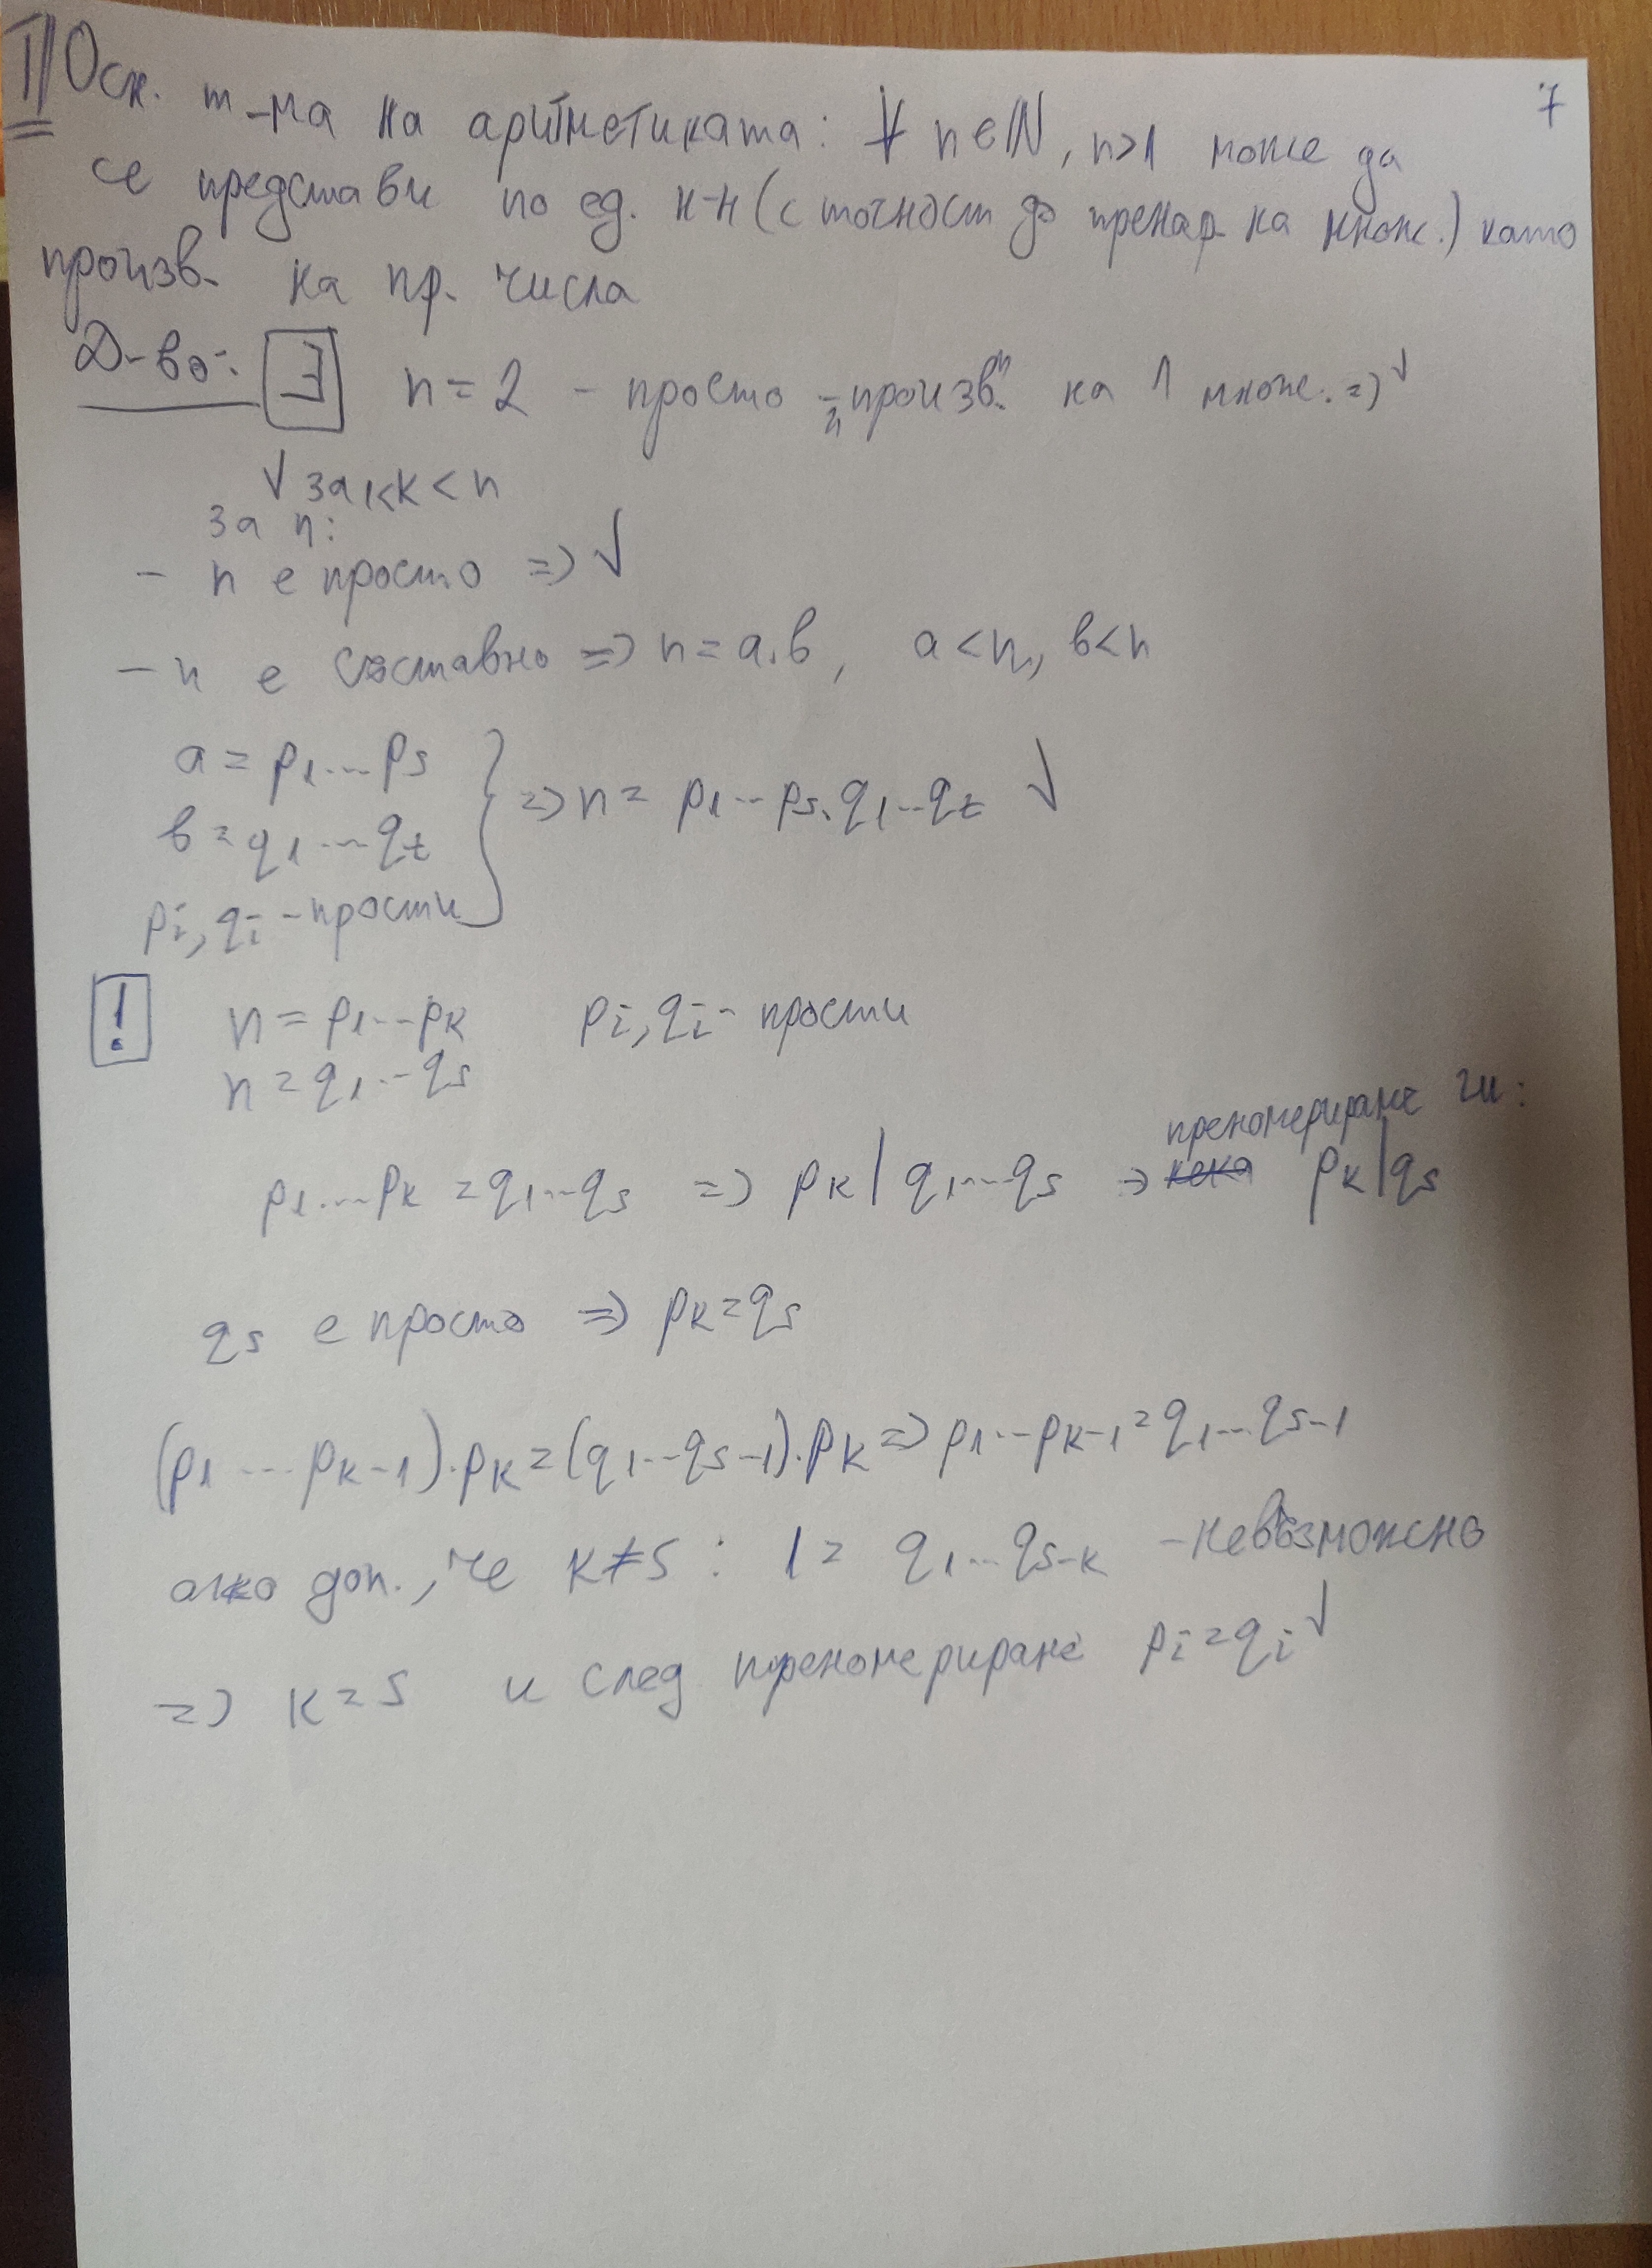 7
T/ Осн. т-ма на аритметиката: ∀ n∈ℕ, n>1 може да
се представи по ед. н-н (с точност до пренар. на множ.) като
произв. на пр. числа
Д-во: ∃ n = 2 - просто - произв. на 1 множ. => √
√ за 1<k < n
за n:
- n е просто => √
- n е съставно => n = a.b, a < n, b < n
a = p₁...pₛ
b = q₁...qₜ
=> n = p₁...pₛ.q₁...qₜ √
pᵢ, qᵢ - прости
! n = p₁...pₖ pᵢ, qᵢ - прости
n = q₁...qₛ
преномерираме ги:
p₁...pₖ = q₁...qₛ => pₖ | q₁...qₛ => pₖ | qₛ
qₛ е просто => pₖ = qₛ
(p₁...pₖ₋₁).pₖ = (q₁...qₛ₋₁).pₖ => p₁...pₖ₋₁ = q₁...qₛ₋₁
ако доп., че k ≠ s : 1 = q₁...qₛ₋ₖ - невъзможно
=> k = s и след преномериране pᵢ = qᵢ √